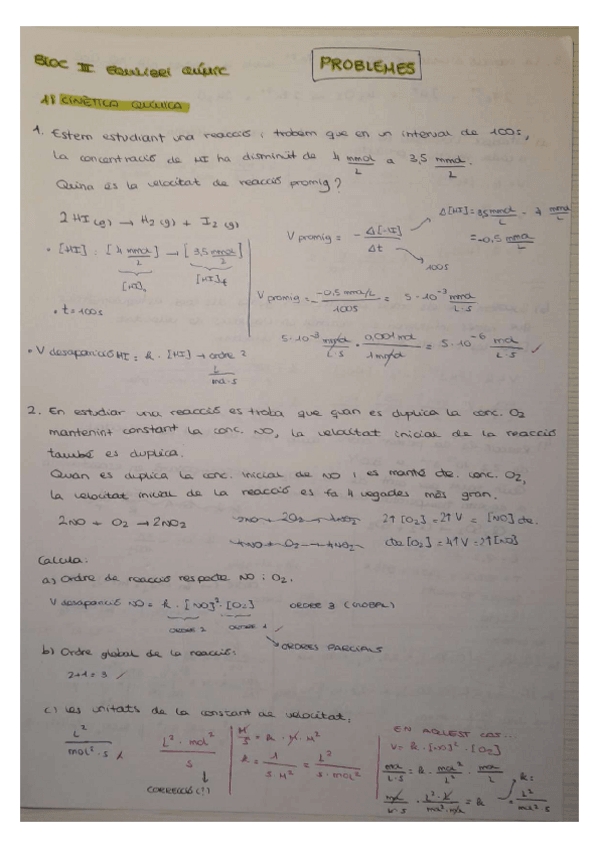 BLOC III EQUILIBRI QUÍMIC
PROBLEMES
1) CINÈTICA QUÍMICA
1. Estem estudiant una reacció i trobem que en un interval de 100s,
la concentració de HI ha disminuït de 4 mmol/L a 3,5 mmol/L.
Quina és la velocitat de reacció promig?
2 HI (g) → H2 (g) + I2 (g)
• [HI] : [4 mmol/L] → [3,5 mmol/L]
[HI]o [HI]f
• t = 100s
V promig = - Δ[HI] / Δt
Δ[HI] = 3,5 mmol/L - 4 mmol/L
= -0,5 mmol/L
100s
V promig = - -0,5 mmol/L / 100s = 5·10^-3 mmol/L·s
5·10^-3 mmol/L·s · 0,001 mol/1 mmol = 5·10^-6 mol/L·s ✓
• V desaparició HI = k · [HI] → ordre 2
L/mol·s
2. En estudiar una reacció es troba que quan es duplica la conc. O2
mantenint constant la conc. NO, la velocitat inicial de la reacció
també es duplica.
Quan es duplica la conc. inicial de NO i es manté cte. conc. O2,
la velocitat inicial de la reacció es fa 4 vegades més gran.
2NO + O2 → 2NO2
2↑[O2] = 2↑V = [NO] cte.
cte [O2] = 4↑V = 2↑[NO]
Calcula:
a) Ordre de reacció respecte NO i O2.
V desaparició NO = k · [NO]² · [O2] ORDRE 3 (GLOBAL)
ORDRE 2 ORDRE 1 ✓
→ ORDRES PARCIALS
b) Ordre global de la reacció:
2+1 = 3 ✓
c) Les unitats de la constant de velocitat:
L²/mol²·s
L²·mol²/s
↓
CORRECCIÓ (!)
M/s = k · M · M²
k = 1/s·M² = L²/s·mol²
EN AQUEST CAS...
V = k · [NO]² · [O2]
mol/L·s = k · mol²/L² · mol/L
mol/L·s · L²·L/mol²·mol = k
k = L²/mol²·s